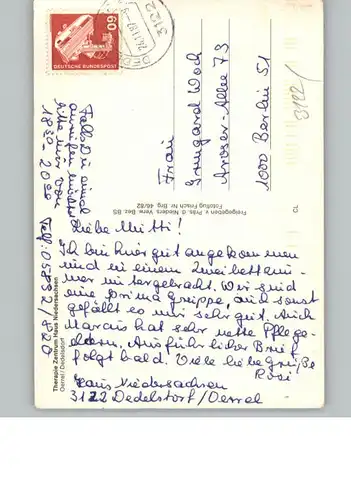 60
DEUTSCHE BUNDESPOST
3122
Frau
Irmgard Woch
Aroser-Allee 73
1000 Berlin 51
3122/
Freigegeben v. Präs. d. Nieders. Verw. Bez. BS
Fotoflug Frisch Nr. Brg 46/82
CL
Falls Du einmal
anrufen möchtest
bitte nur von
18 30 - 20 00 Telf: 05832/820
Liebe Mutti!
Ich bin hier gut angekommen
und in einem Zweibettzim-
mer untergebracht. Wir sind
eine prima Gruppe, auch sonst
gefällt es mir sehr gut. Auch
Marcus hat sehr nette Pflege-
eltern. Ausführlicher Brief
folgt bald. Viele liebe Grüße
Rosi
Haus Niedersachsen
3122 Dedelstorf/Oerrel
Therapie Zentrum Haus Niedersachsen
Oerrel / Dedelsdorf